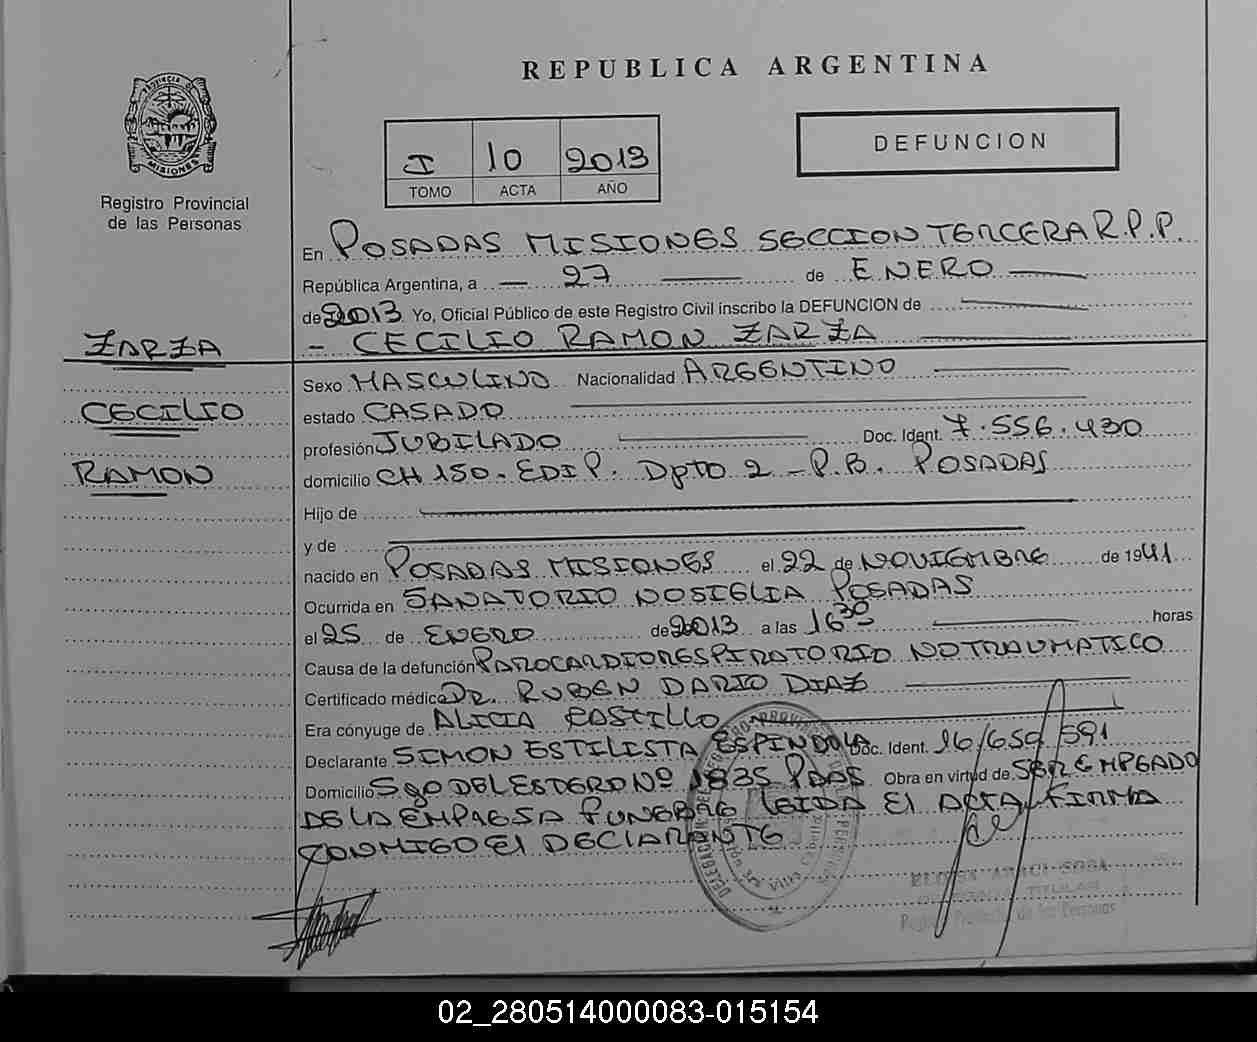 REPUBLICA ARGENTINA
PROVINCIA D MISIONES
Registro Provincial
de las Personas
I 10 2013
TOMO ACTA AÑO
DEFUNCION
En POSADAS MISIONES SECCION TERCERA R.P.P.
República Argentina, a 27 de ENERO
de 2013 Yo, Oficial Público de este Registro Civil inscribo la DEFUNCION de
- CECILIO RAMON ZARZA
ZARZA
CECILIO
RAMON
Sexo MASCULINO Nacionalidad ARGENTINO
estado CASADO
profesión JUBILADO Doc. Ident. 7.556.430
domicilio CH 150. EDIP. Dpto 2 - P.B. POSADAS
Hijo de
y de
nacido en POSADAS MISIONES el 22 de NOVIEMBRE de 1941
Ocurrida en SANATORIO NOSIGLIA POSADAS
el 25 de ENERO de 2013 a las 16 30 horas
Causa de la defunción PAROCARDIORESPIRATORIO NO TRAUMATICO
Certificado médico DR. RUBEN DARIO DIAZ
Era cónyuge de ALICIA COSTILLO
Declarante SIMON ESTILISTA ESPINDOLA Doc. Ident. 16/650/591
Domicilio Sgo DEL ESTERO Nº 1835 PDAS Obra en virtud de SER EMPEADO
DE LA EMPRESA FUNEBRE LEIDA El ACTA FIRMA
CONMIGO El DECLARANTE
ELOISA ARACI SOSA
TITULAR
Registro Provincial de las Personas
02_280514000083-015154